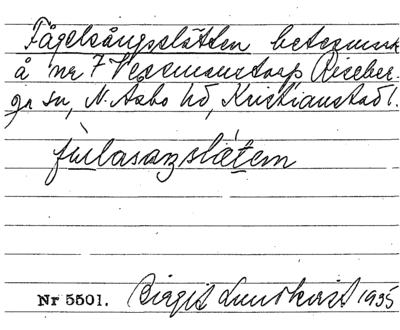 Fågelsångsslätten betesmark
å nr 7 Vessmantorp Riseber-
ga sn, N. Åsbo hd, Kristianstad l.
fúlasaŋslætem
Nr 5501. Birgit Lundkvist 1935